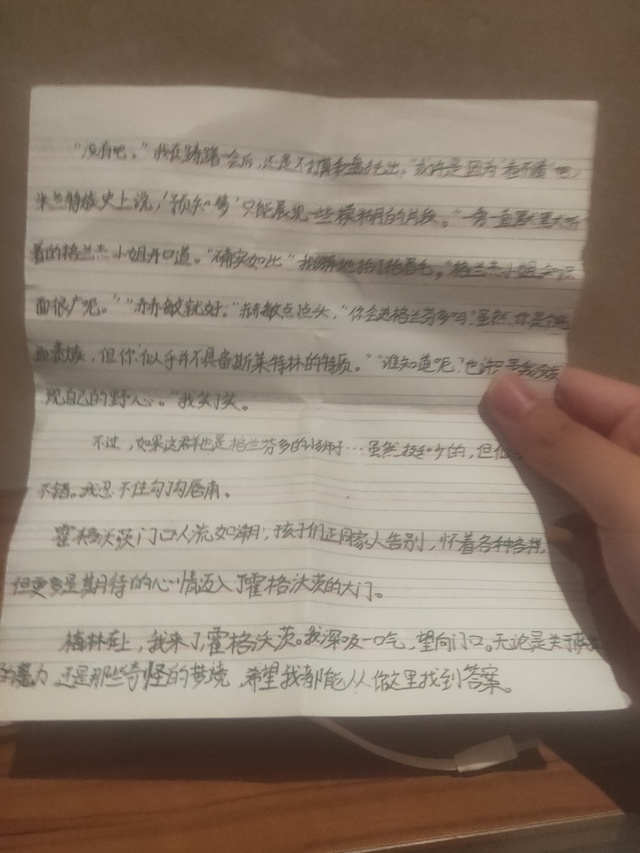 “没有吧。”我在踌躇一会后，还是不打算和盘托出。“或许是因为‘看不清’吧，
米兰特族史上说，‘预知梦’只能展现一些模糊的片段。”一旁一直默默听
着的格兰杰小姐开口道。“确实如此”我讶地抬了抬眉毛，“格兰杰小姐知识
面很广呢。”“赫敏就好。”赫敏点点头，“你会进格兰芬多吗？虽然你是
血贵族，但你似乎并不具备斯莱特林的特质。”“谁知道呢？也许是我没发
现自己的野心。”我笑了笑。
不过，如果这群也是格兰芬多的小狮子…虽然挺吵的，但
不错。我忍不住勾了勾唇角。
霍格沃茨门口人流如潮，孩子们正同家人告别，怀着各种各样，
但更多是期待的心情迈入了霍格沃茨的大门。
梅林在上，我来了，霍格沃茨。我深吸一口气，望向门口。无论是关于
的魔力，还是那些奇怪的梦境，希望我都能从你这里找到答案。